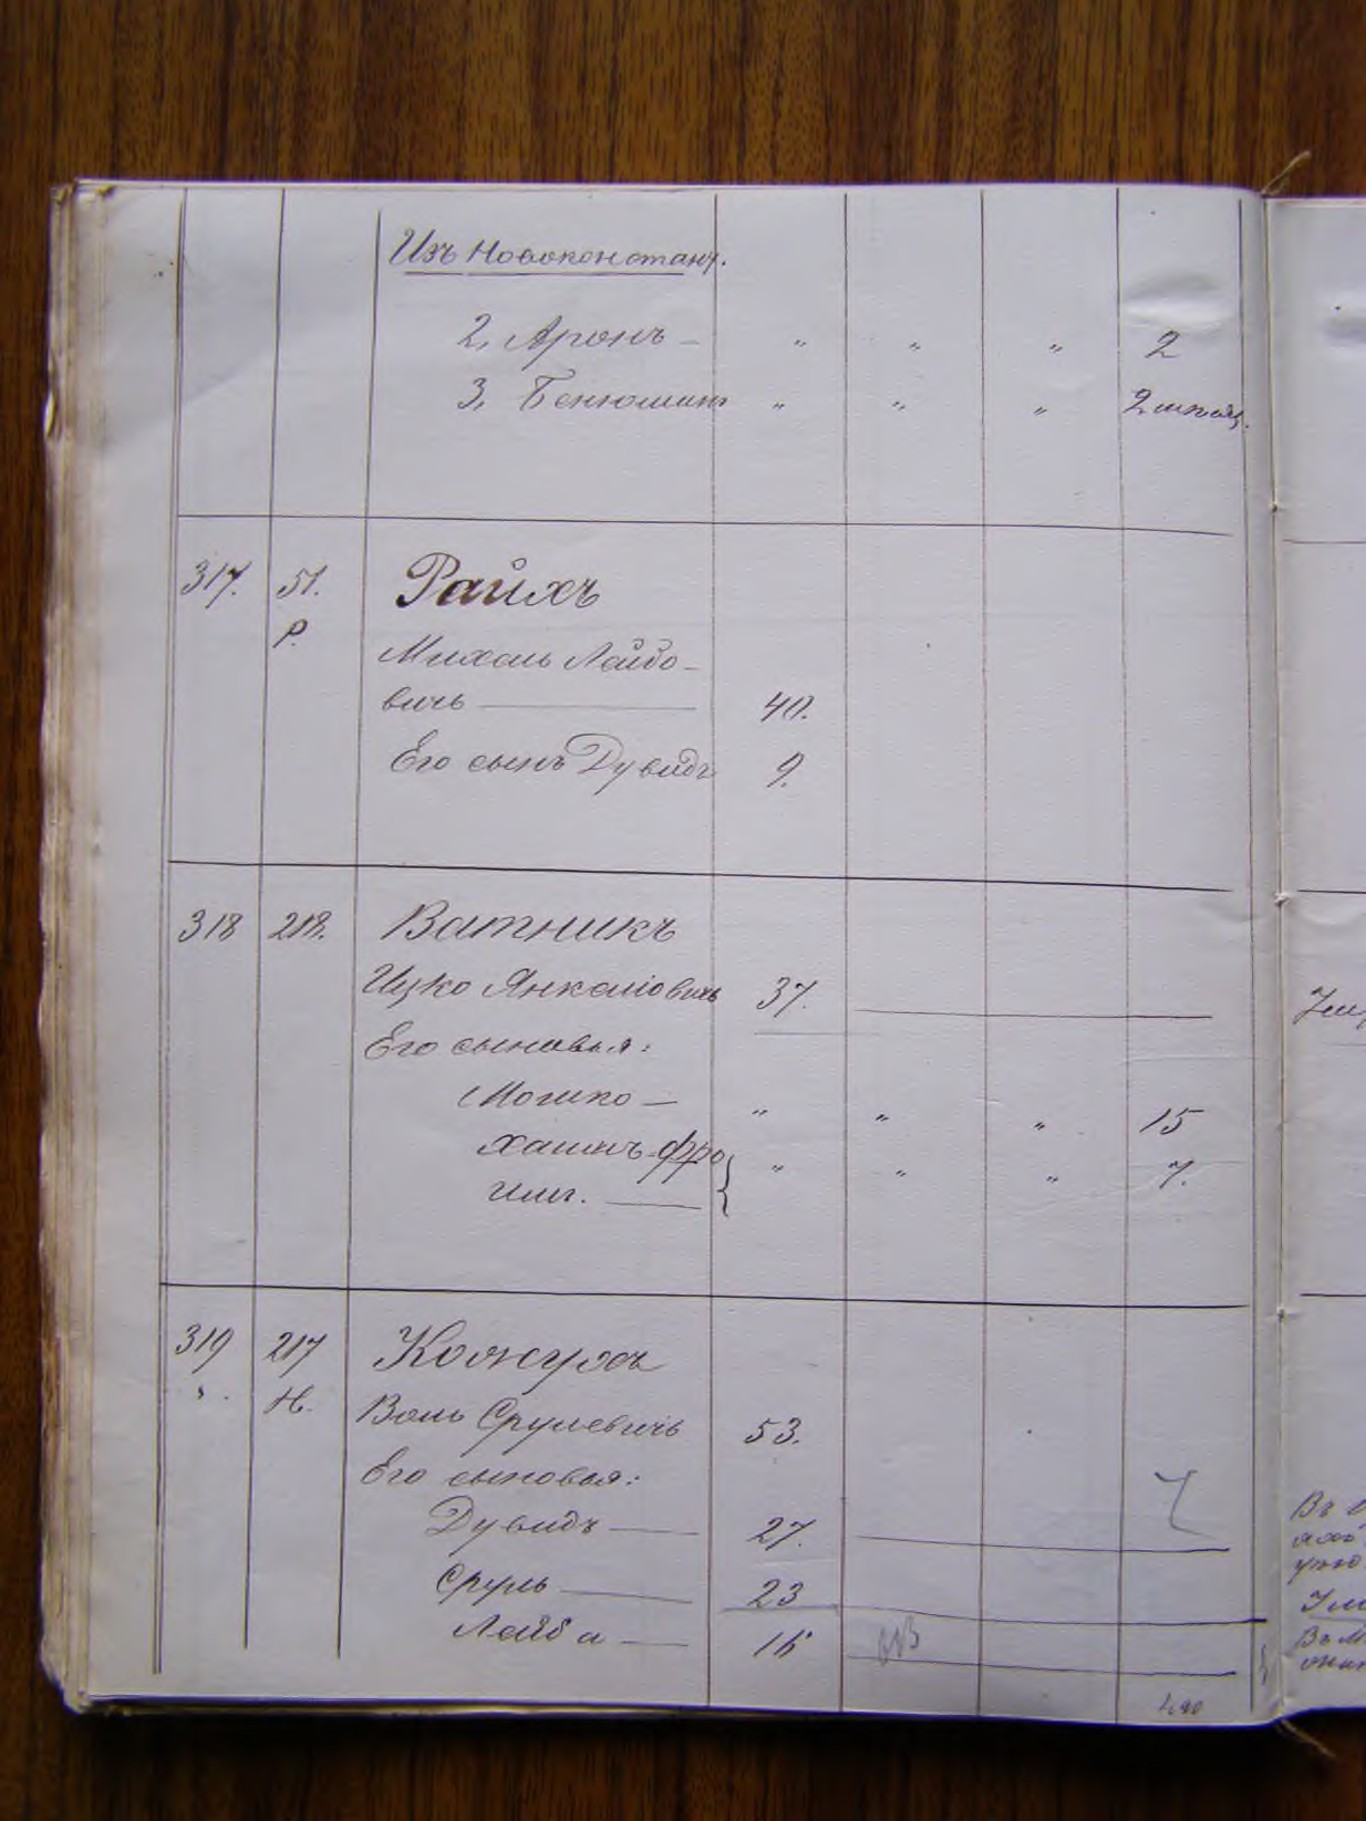 Изъ Новоконстант.
2, Аронъ — " " " 2
3, Бенюминъ " " "
317. 51. Райхъ
Р.
Михель Лейбо-
вичъ — 40.
Его сынъ Дувидъ 9.
318 218. Ватникъ
Ицко Янкелiовичъ 37.
Его сыновья:
Мошко — " " " 15
Хаимъ-Фро " " " 7.
имъ. —
319 217 Кожухъ
Н.
Волъ Срулевичъ 53.
Его сыновья:
Дувидъ — 27.
Сруль — 23
Лейба — 16